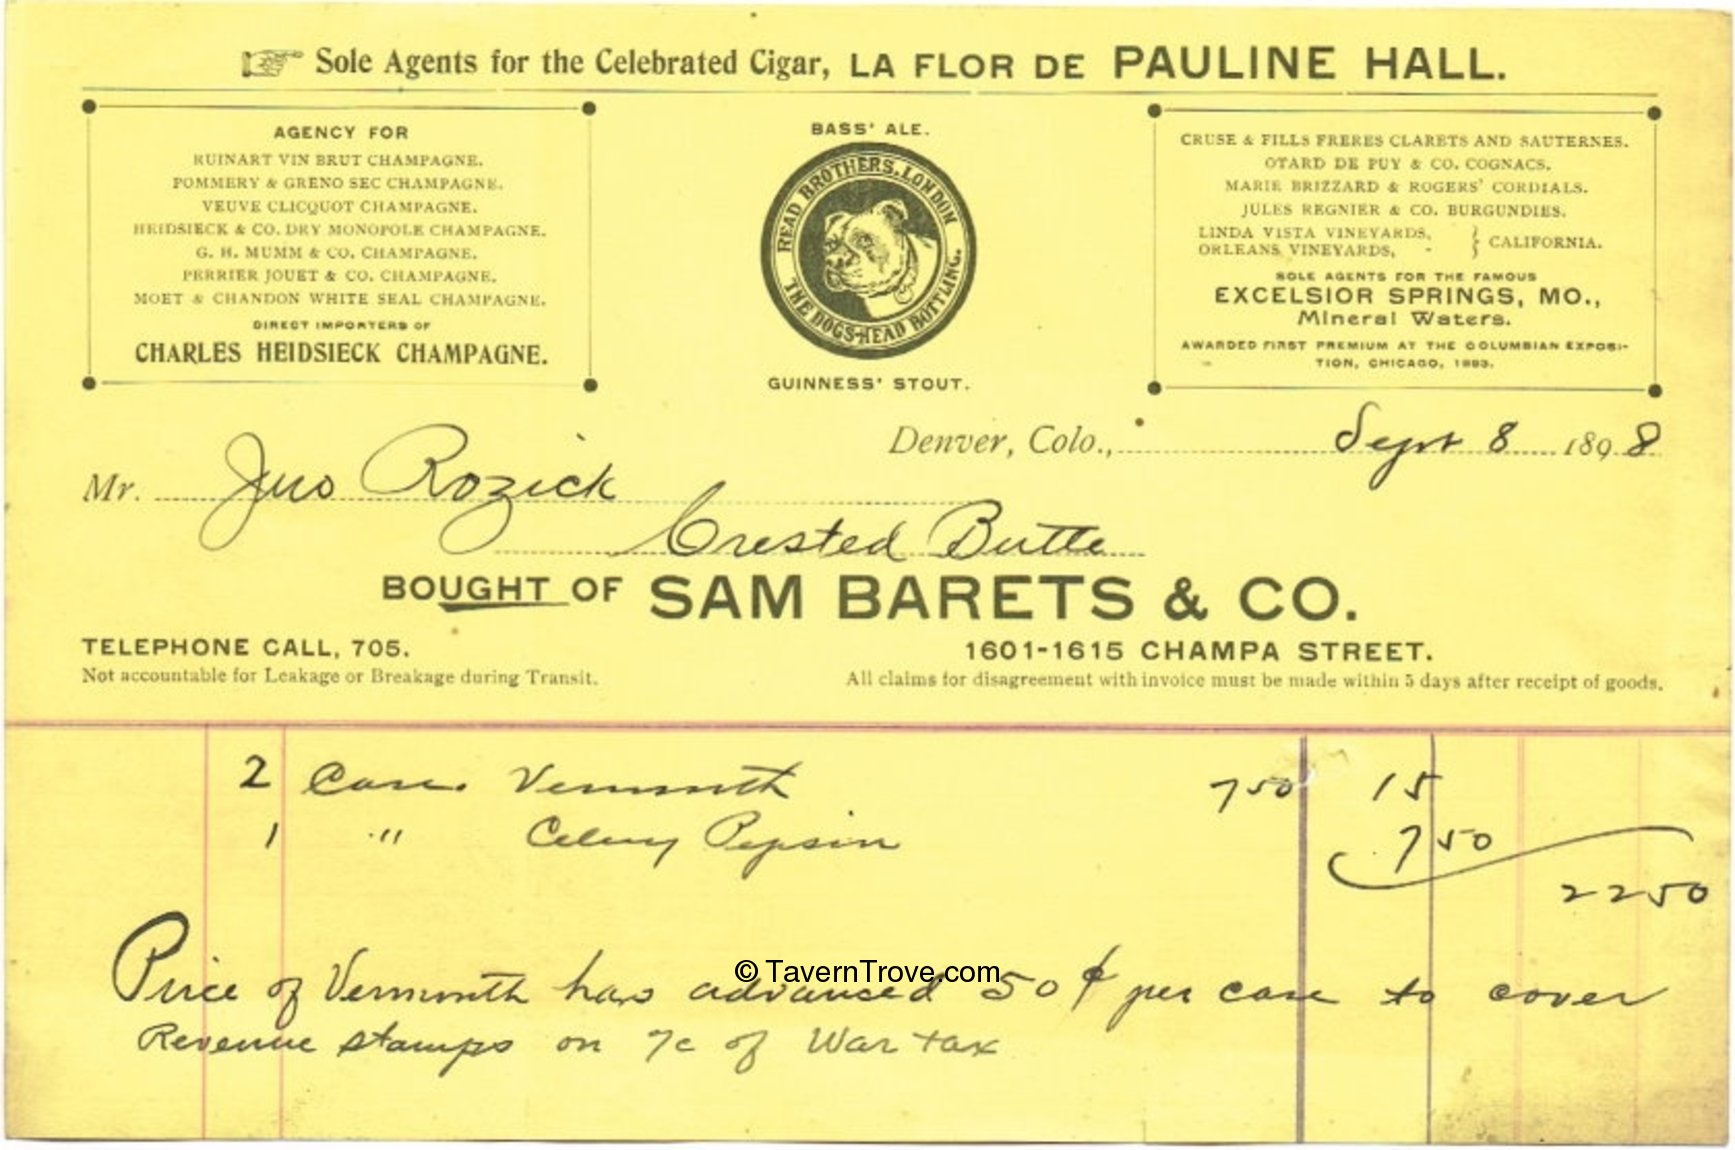 Sole Agents for the Celebrated Cigar, LA FLOR DE PAULINE HALL.
AGENCY FOR
RUINART VIN BRUT CHAMPAGNE.
POMMERY & GRENO SEC CHAMPAGNE.
VEUVE CLICQUOT CHAMPAGNE.
HEIDSIECK & CO. DRY MONOPOLE CHAMPAGNE.
G. H. MUMM & CO. CHAMPAGNE.
PERRIER JOUET & CO. CHAMPAGNE.
MOET & CHANDON WHITE SEAL CHAMPAGNE.
DIRECT IMPORTERS OF
CHARLES HEIDSIECK CHAMPAGNE.
BASS' ALE.
READ BROTHERS, LONDON
THE DOGS-HEAD BOTTLING.
GUINNESS' STOUT.
CRUSE & FILLS FRERES CLARETS AND SAUTERNES.
OTARD DE PUY & CO. COGNACS.
MARIE BRIZZARD & ROGERS' CORDIALS.
JULES REGNIER & CO. BURGUNDIES.
LINDA VISTA VINEYARDS,
ORLEANS VINEYARDS, - } CALIFORNIA.
SOLE AGENTS FOR THE FAMOUS
EXCELSIOR SPRINGS, MO.,
Mineral Waters.
AWARDED FIRST PREMIUM AT THE COLUMBIAN EXPOSI-
TION, CHICAGO, 1893.
Denver, Colo., Sept 8 1898
Mr. Jno Rozick
Crested Butte
BOUGHT OF SAM BARETS & CO.
TELEPHONE CALL, 705.
1601-1615 CHAMPA STREET.
Not accountable for Leakage or Breakage during Transit.
All claims for disagreement with invoice must be made within 5 days after receipt of goods.
2 Case Vermouth 750 15
1 " Celery Pepsin 7 50
22 50
Price of Vermouth has advanced 50 ¢ per case to cover
Revenue stamps on a/c of War tax
© TavernTrove.com